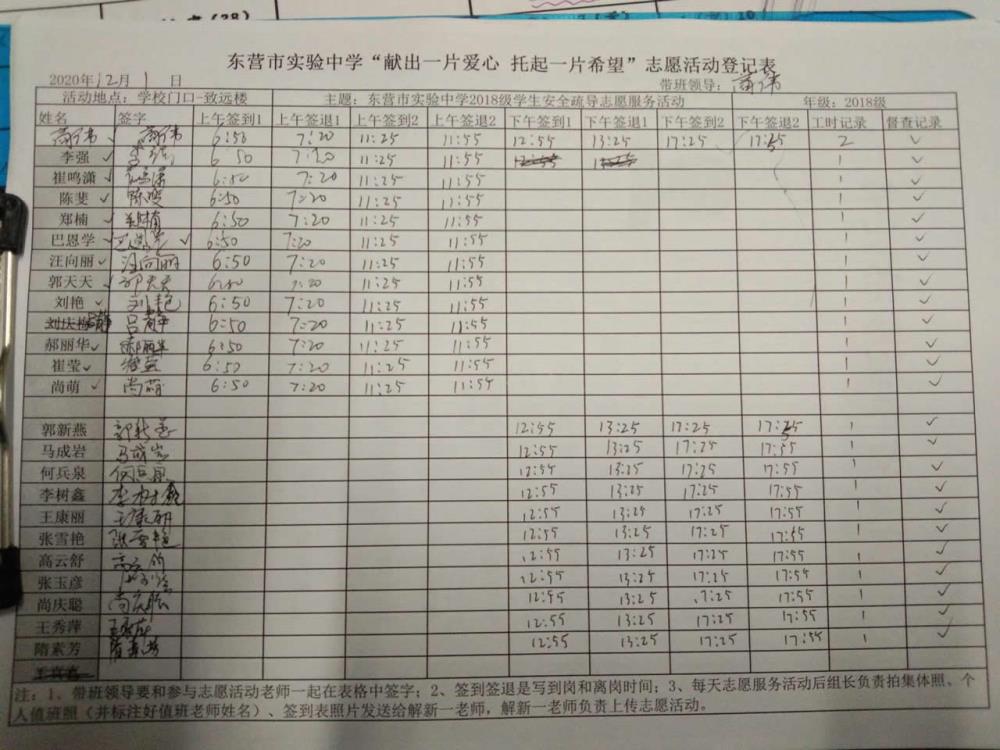 东营市实验中学“献出一片爱心 托起一片希望”志愿活动登记表
2020年12月1日 带班领导：
活动地点：学校门口-致远楼 主题：东营市实验中学2018级学生安全疏导志愿服务活动 年级：2018级
姓名 签字 上午签到1 上午签退1 上午签到2 上午签退2 下午签到1 下午签退1 下午签到2 下午签退2 工时记录 督查记录
6:50 7:20 11:25 11:55 12:55 13:25 17:25 17:55 2 ✓
李强 ✓ 李强 6:50 7:20 11:25 11:55 1 ✓
崔鸣潇 ✓ 崔鸣潇 6:50 7:20 11:25 11:55 1 ✓
陈斐 ✓ 陈斐 6:50 7:20 11:25 11:55 1 ✓
郑楠 ✓ 郑楠 6:50 7:20 11:25 11:55 1 ✓
巴恩学 ✓ 巴恩学 ✓ 6:50 7:20 11:25 11:55 1 ✓
汪向丽 ✓ 汪向丽 6:50 7:20 11:25 11:55 1 ✓
郭天天 ✓ 郭天天 6:50 7:20 11:25 11:55 1 ✓
刘艳 ✓ 刘艳 6:50 7:20 11:25 11:55 1 ✓
吕静 吕静 6:50 7:20 11:25 11:55 1 ✓
郝丽华 ✓ 郝丽华 6:50 7:20 11:25 11:55 1 ✓
崔莹 ✓ 崔莹 6:50 7:20 11:25 11:55 1 ✓
尚萌 ✓ 尚萌 6:50 7:20 11:25 11:55 1 ✓
郭新燕 郭新燕 12:55 13:25 17:25 17:55 1 ✓
马成岩 马成岩 12:55 13:25 17:25 17:55 1 ✓
何兵泉 何兵泉 12:55 13:25 17:25 17:55 1 ✓
李树鑫 李树鑫 12:55 13:25 17:25 17:55 1 ✓
王康丽 王康丽 12:55 13:25 17:25 17:55 1 ✓
张雪艳 张雪艳 12:55 13:25 17:25 17:55 1 ✓
高云舒 高云舒 12:55 13:25 17:25 17:55 1 ✓
张玉彦 12:55 13:25 17:25 17:55 1 ✓
尚庆聪 尚庆聪 12:55 13:25 17:25 17:55 1 ✓
王秀萍 王秀萍 12:55 13:25 17:25 17:55 1 ✓
隋素芳 隋素芳 12:55 13:25 17:25 17:55 1 ✓
注：1、带班领导要和参与志愿活动老师一起在表格中签字；2、签到签退是写到岗和离岗时间；3、每天志愿服务活动后组长负责拍集体照、个
人值班照（并标注好值班老师姓名）、签到表照片发送给解新一老师，解新一老师负责上传志愿活动。